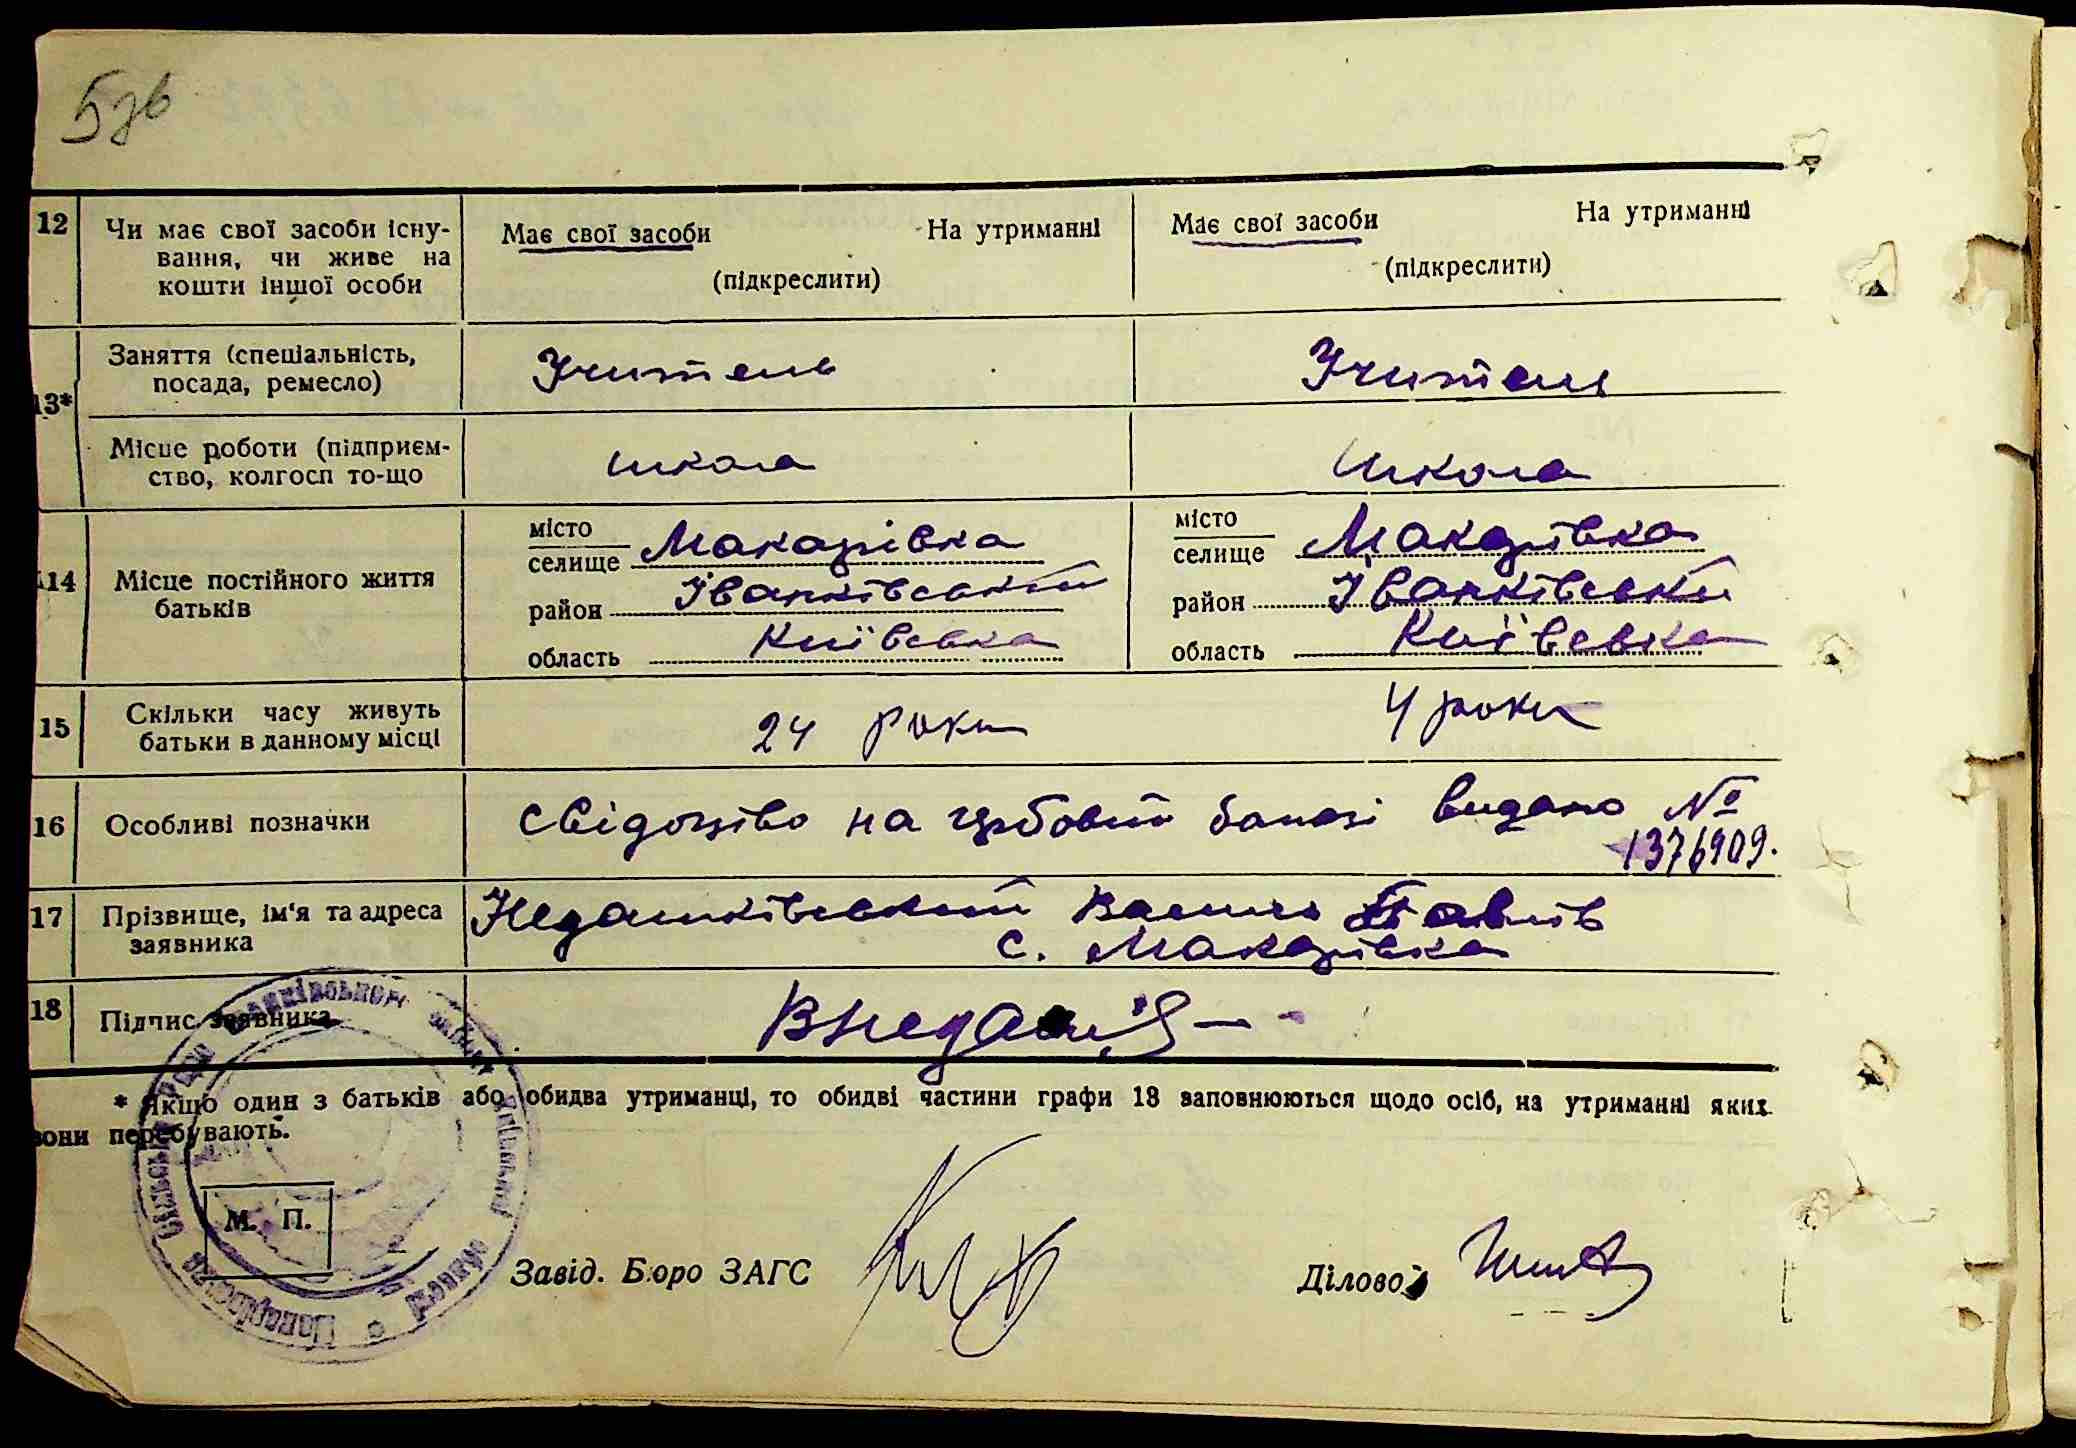 5зв
12 Чи має свої засоби існу-
вання, чи живе на
кошти іншої особи
Має свої засоби На утриманні
(підкреслити)
Має свої засоби На утриманні
(підкреслити)
13* Заняття (спеціальність,
посада, ремесло)
Учитель
Учитель
Місце роботи (підприєм-
ство, колгосп то-що
школа
школа
14 Місце постійного життя
батьків
місто
селище Макарівка
район Іванківський
область Київська
місто
селище Макарівка
район Іванківський
область Київська
15 Скільки часу живуть
батьки в данному місці
24 роки
4 роки
16 Особливі позначки
свідоцтво на гербовій бумазі видано №
1376909.
17 Прізвище, ім'я та адреса
заявника
Недашківський Василь Павлів
с. Макарівка
18 Підпис заявника
* Якщо один з батьків або обидва утриманці, то обидві частини графи 13 заповнюються щодо осіб, на утриманні яких
вони перебувають.
М. П.
Завід. Бюро ЗАГС
Діловод